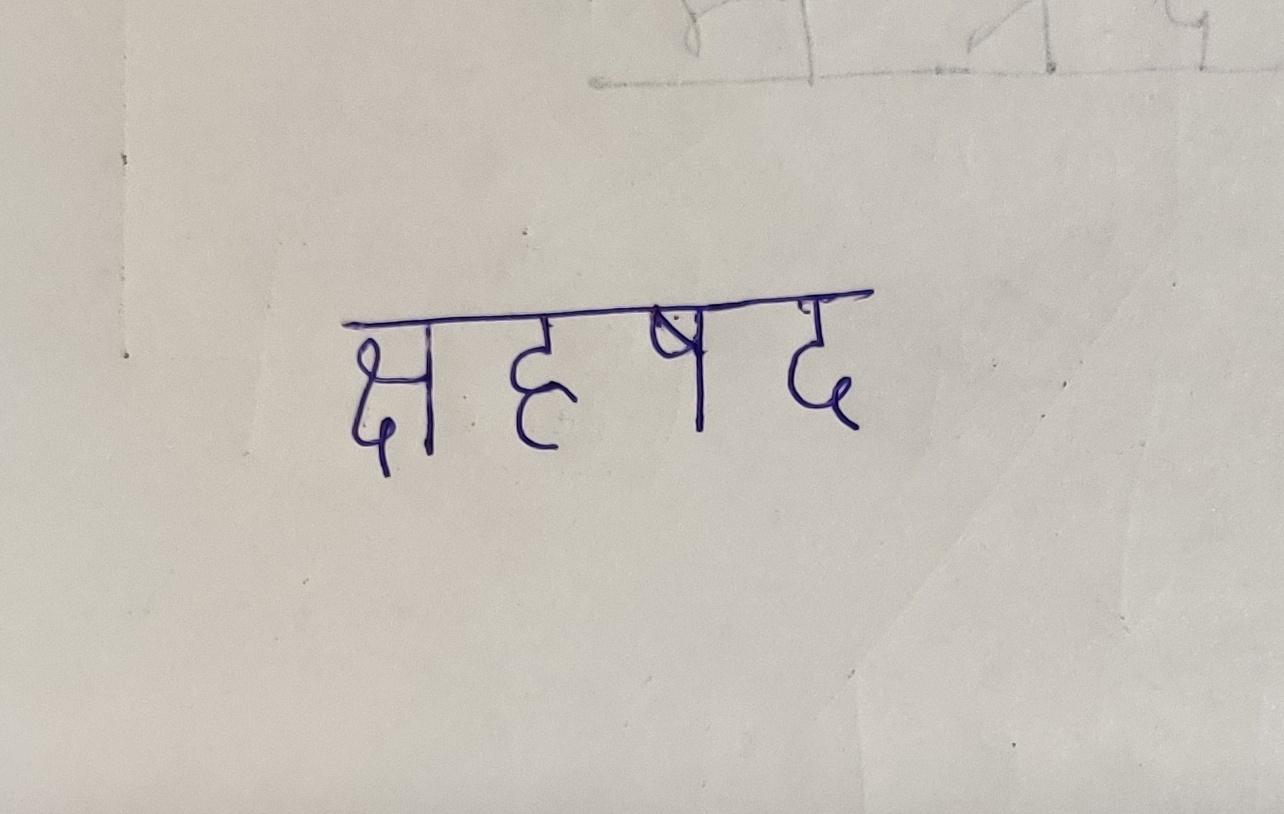 क्षहषद